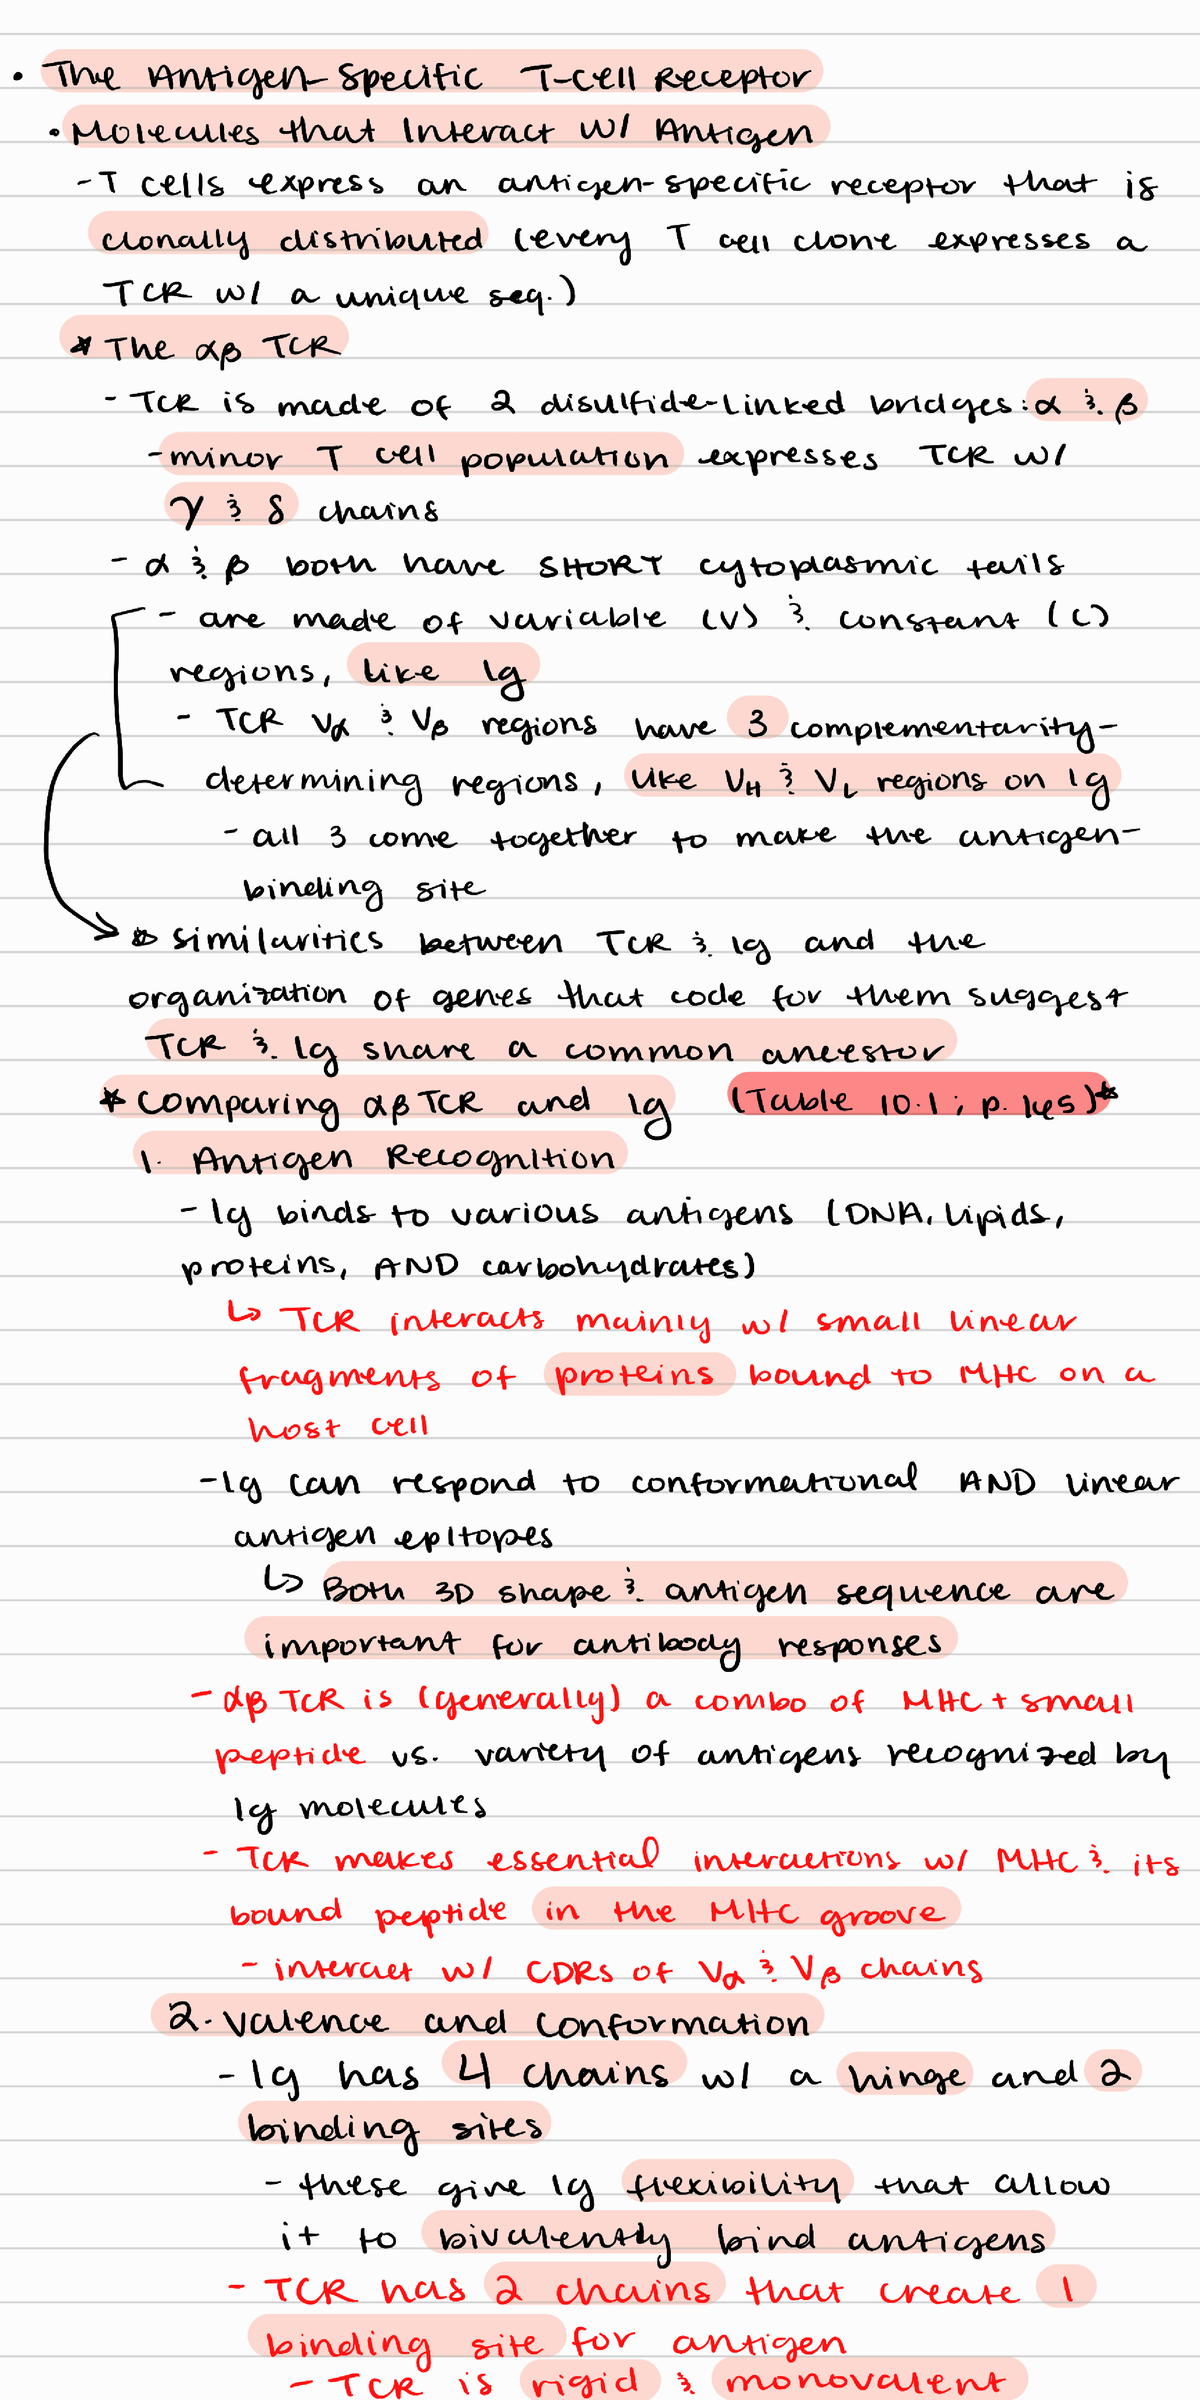 • The Antigen-Specific T-Cell Receptor
• Molecules that Interact w/ Antigen
- T cells express an antigen-specific receptor that is
clonally distributed (every T cell clone expresses a
TCR w/ a unique seq.)
* The αβ TCR
- TCR is made of 2 disulfide-linked bridges: α & β
- minor T cell population expresses TCR w/
γ & δ chains
- α & β both have SHORT cytoplasmic tails
- are made of variable (V) & constant (C)
regions, like Ig
- TCR Vα & Vβ regions have 3 complementarity-
determining regions, like VH & VL regions on Ig
- all 3 come together to make the antigen-
binding site
* similarities between TCR & Ig and the
organization of genes that code for them suggest
TCR & Ig share a common ancestor
* Comparing αβ TCR and Ig (Table 10.1; p. 145)*
1. Antigen Recognition
- Ig binds to various antigens (DNA, lipids,
proteins, AND carbohydrates)
↳ TCR interacts mainly w/ small linear
fragments of proteins bound to MHC on a
host cell
- Ig can respond to conformational AND linear
antigen epitopes
↳ Both 3D shape & antigen sequence are
important for antibody responses
- αβ TCR is (generally) a combo of MHC + small
peptide vs. variety of antigens recognized by
Ig molecules
- TCR makes essential interactions w/ MHC & its
bound peptide in the MHC groove
- interact w/ CDRs of Vα & Vβ chains
2. Valence and Conformation
- Ig has 4 chains w/ a hinge and 2
binding sites
- these give Ig flexibility that allow
it to bivalently bind antigens
- TCR has 2 chains that create 1
binding site for antigen
- TCR is rigid & monovalent